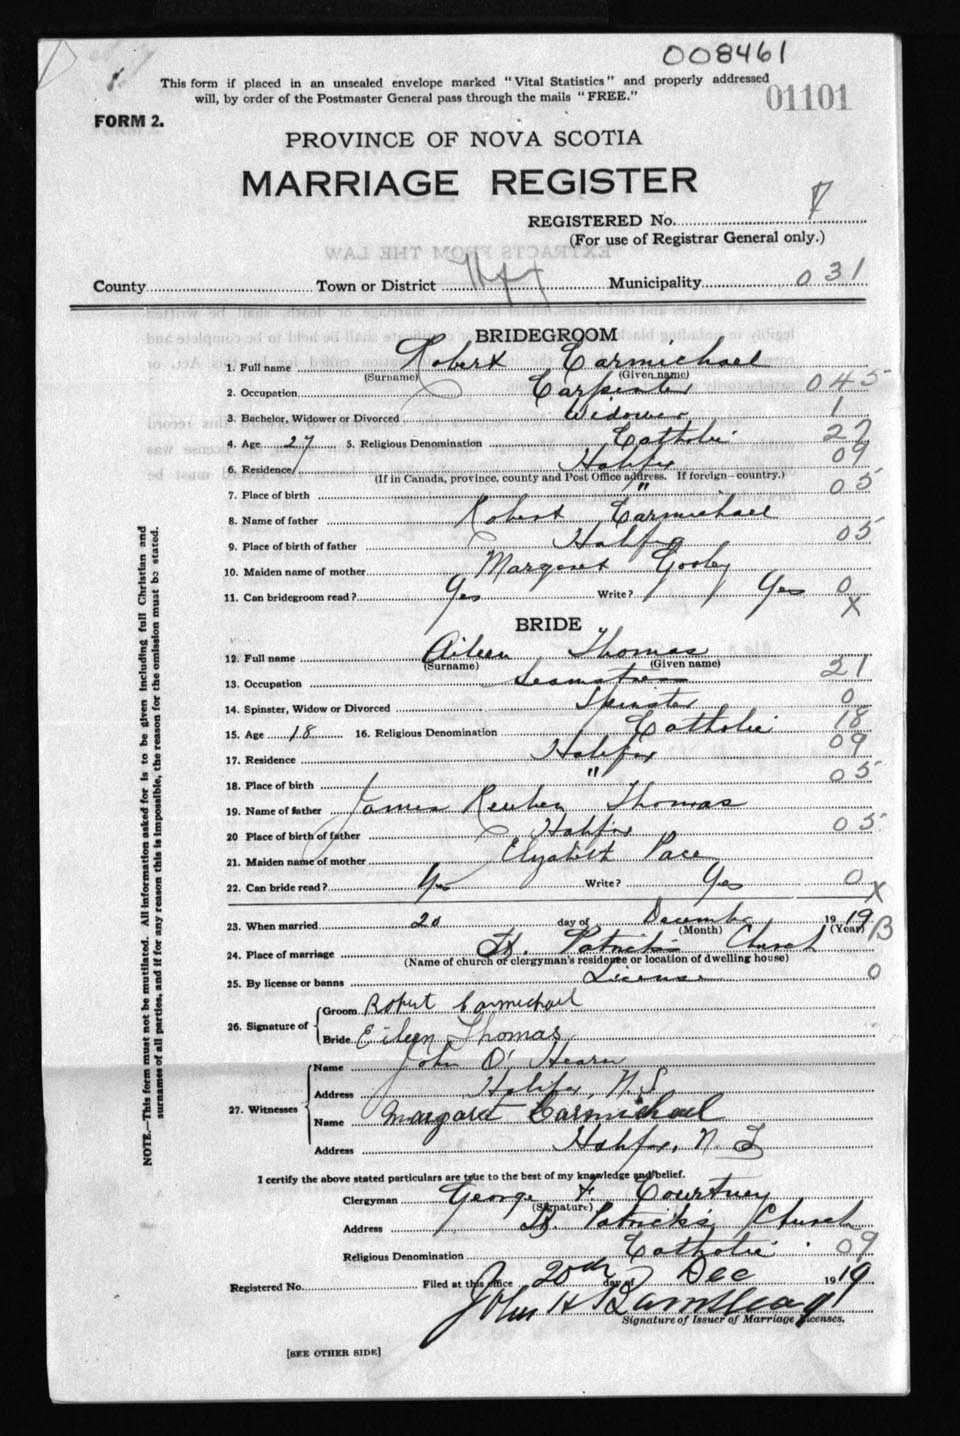 008461
This form if placed in an unsealed envelope marked "Vital Statistics" and properly addressed
will, by order of the Postmaster General pass through the mails "FREE."
01101
FORM 2.
PROVINCE OF NOVA SCOTIA
MARRIAGE REGISTER
REGISTERED No.
(For use of Registrar General only.)
EXTRACTS FROM THE LAW
County Town or District Hfx Municipality 031
BRIDEGROOM
1. Full name Robert Carmichael
(Surname) (Given name)
2. Occupation Carpenter 045
3. Bachelor, Widower or Divorced Widower 1
4. Age 27 5. Religious Denomination Catholic 27
6. Residence Halifax 09
(If in Canada, province, county and Post Office address. If foreign—country.)
7. Place of birth " 05
8. Name of father Robert Carmichael
9. Place of birth of father Halifax 05
10. Maiden name of mother Margaret
11. Can bridegroom read? Yes Write? Yes 0
X
BRIDE
12. Full name Aileen Thomas
(Surname) (Given name)
13. Occupation Seamstress 21
14. Spinster, Widow or Divorced Spinster 0
15. Age 18 16. Religious Denomination Catholic 18
17. Residence Halifax 09
18. Place of birth " 05
19. Name of father James Reuben Thomas
20 Place of birth of father Halifax 05
21. Maiden name of mother Elizabeth Pace
22. Can bride read? Yes Write? Yes 0
X
23. When married 20 day of December 1919
(Month) (Year) B
24. Place of marriage St. Patrick's Church
(Name of church or clergyman's residence or location of dwelling house)
25. By license or banns License 0
26. Signature of Groom Robert Carmichael
Bride Eileen Thomas
27. Witnesses Name John O'Hearn
Address Halifax, N.S.
Name Margaret Carmichael
Address Halifax, N.S.
I certify the above stated particulars are true to the best of my knowledge and belief.
Clergyman George F Courtney
(Signature)
Address St. Patrick's Church
Religious Denomination Catholic 09
Registered No. Filed at this office 20th day of Dec 1919
John H
Signature of Issuer of Marriage Licenses.
[SEE OTHER SIDE]
NOTE.—This form must not be mutilated. All information asked for is to be given including full Christian and
surnames of all parties, and if for any reason this is impossible, the reason for the omission must be stated.